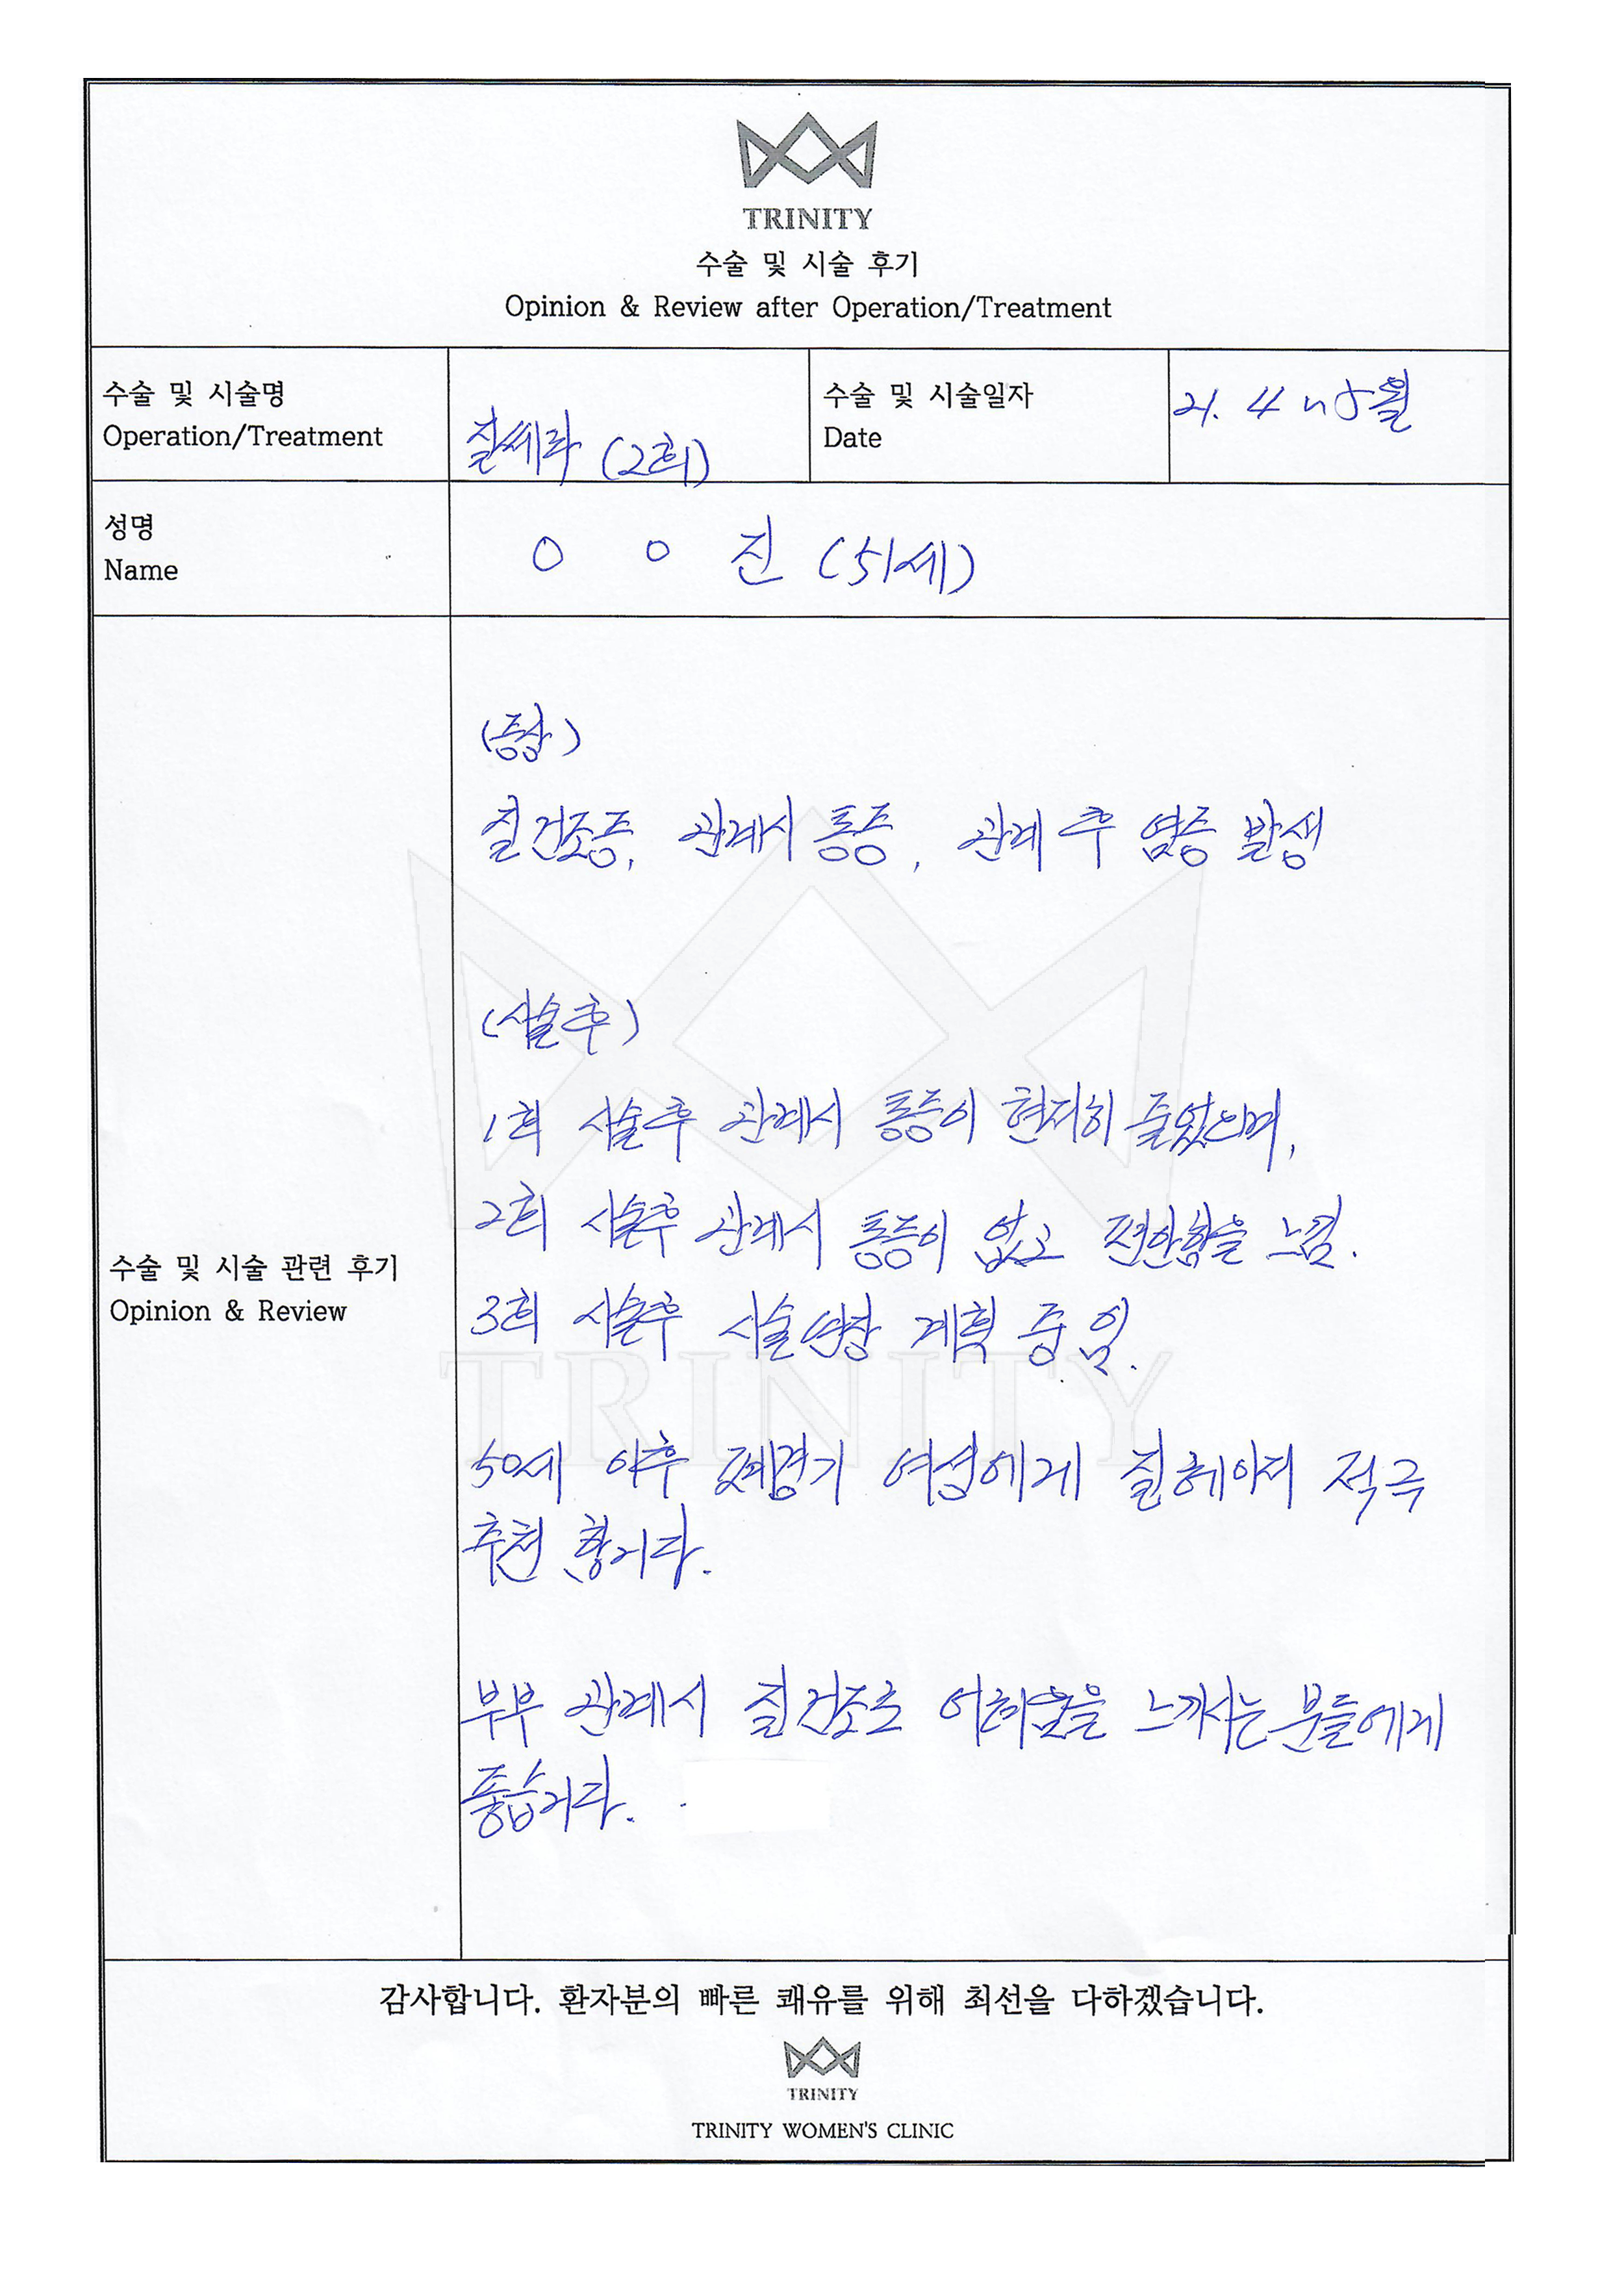 TRINITY
수술 및 시술 후기
Opinion & Review after Operation/Treatment
수술 및 시술명
Operation/Treatment
질쎄라 (2회)
수술 및 시술일자
Date
21. 4 ~ 5월
성명
Name
○ ○ 진 (51세)
(증상)
질건조증, 관계시 통증, 관계 후 염증 발생
(시술후)
1회 시술후 관계시 통증이 현저히 줄었으며,
2회 시술후 관계시 통증이 없고 편안함을 느낌.
3회 시술후 시술연장 계획 중 임.
수술 및 시술 관련 후기
Opinion & Review
TRINITY
50세 이후 폐경기 여성에게 질 적극
추천 합니다.
부부 관계시 질건조로 어려움을 느끼시는 분들에게
좋습니다.
감사합니다. 환자분의 빠른 쾌유를 위해 최선을 다하겠습니다.
TRINITY
TRINITY WOMEN'S CLINIC